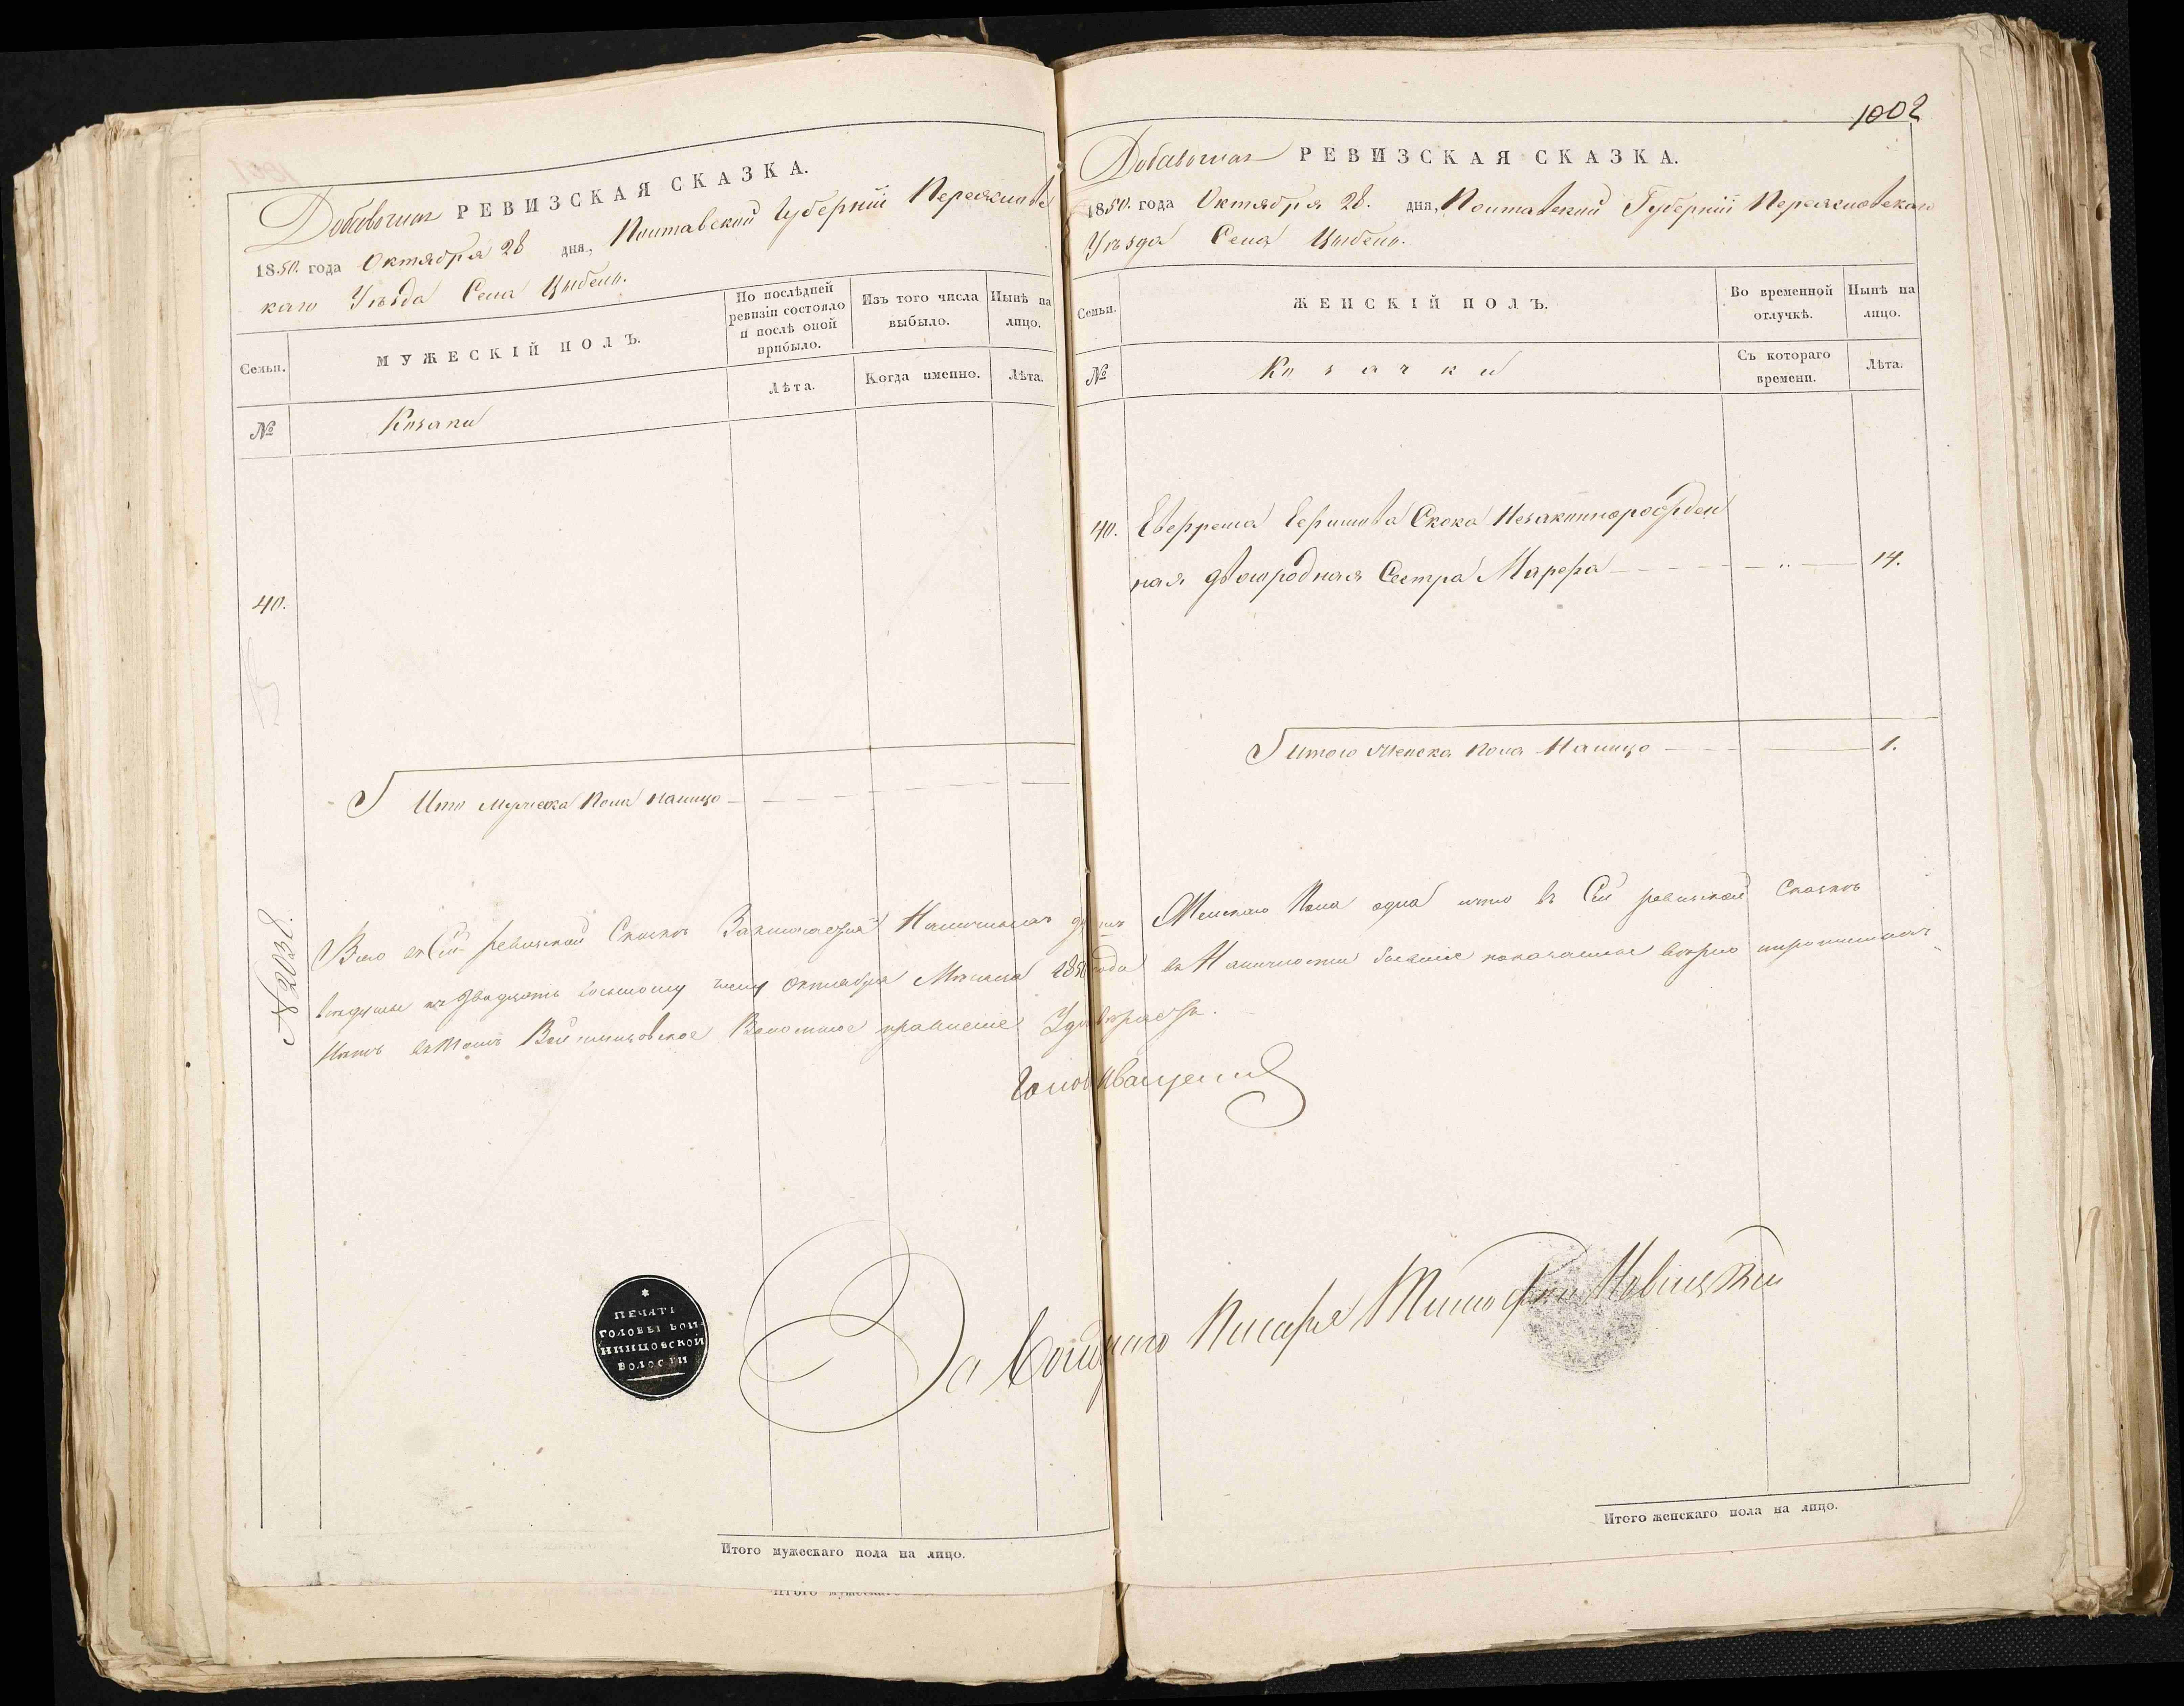 Добавочная РЕВИЗСКАЯ СКАЗКА.
1850. года Октября 28 дня, Полтавской Губерніи Переяславс
каго Уѣзда Села Цыбель.
Семьи.
МУЖЕСКІЙ ПОЛЪ.
По послѣдней ревизіи состояло и послѣ оной прибыло.
Изъ того числа выбыло.
Нынѣ на лицо.
№
Козаки
Лѣта.
Когда именно.
Лѣта.
40.
Итого Мужеска Пола налицо
№ 2038.
1002
Добавочная РЕВИЗСКАЯ СКАЗКА.
1850. года Октября 28. дня, Полтавской Губерніи Переяславскаго
Уѣзда Села Цыбель.
Семьи.
ЖЕНСКІЙ ПОЛЪ.
Во временной отлучкѣ.
Нынѣ на лицо.
№
Козачки
Съ котораго времени.
Лѣта.
40. Скока Незаконнорожден
ная двоюродная Сестра Марфа 14.
Итого Женска Пола Налицо 1.
Всего въ Сей ревизской Сказкѣ Заключается Наличныхъ душъ Женскаго Пола одна что въ Сей ревизской Сказкѣ
всѣ души къ двадцать восьмому числу Октября Мѣсяца 1850 года въ Наличности бывшіе показанные вѣрно
нѣтъ въ томъ Войтинцовское Волостное правленіе Удостовѣряетъ.
Голова Иващенко
За Волостнаго Писаря Тимофей Новицкій
ПЕЧАТЬ
ГОЛОВЫ ВОЙ-
НИНЦОВСКОЙ
ВОЛОСТИ
Итого мужескаго пола на лицо.
Итого женскаго пола на лицо.